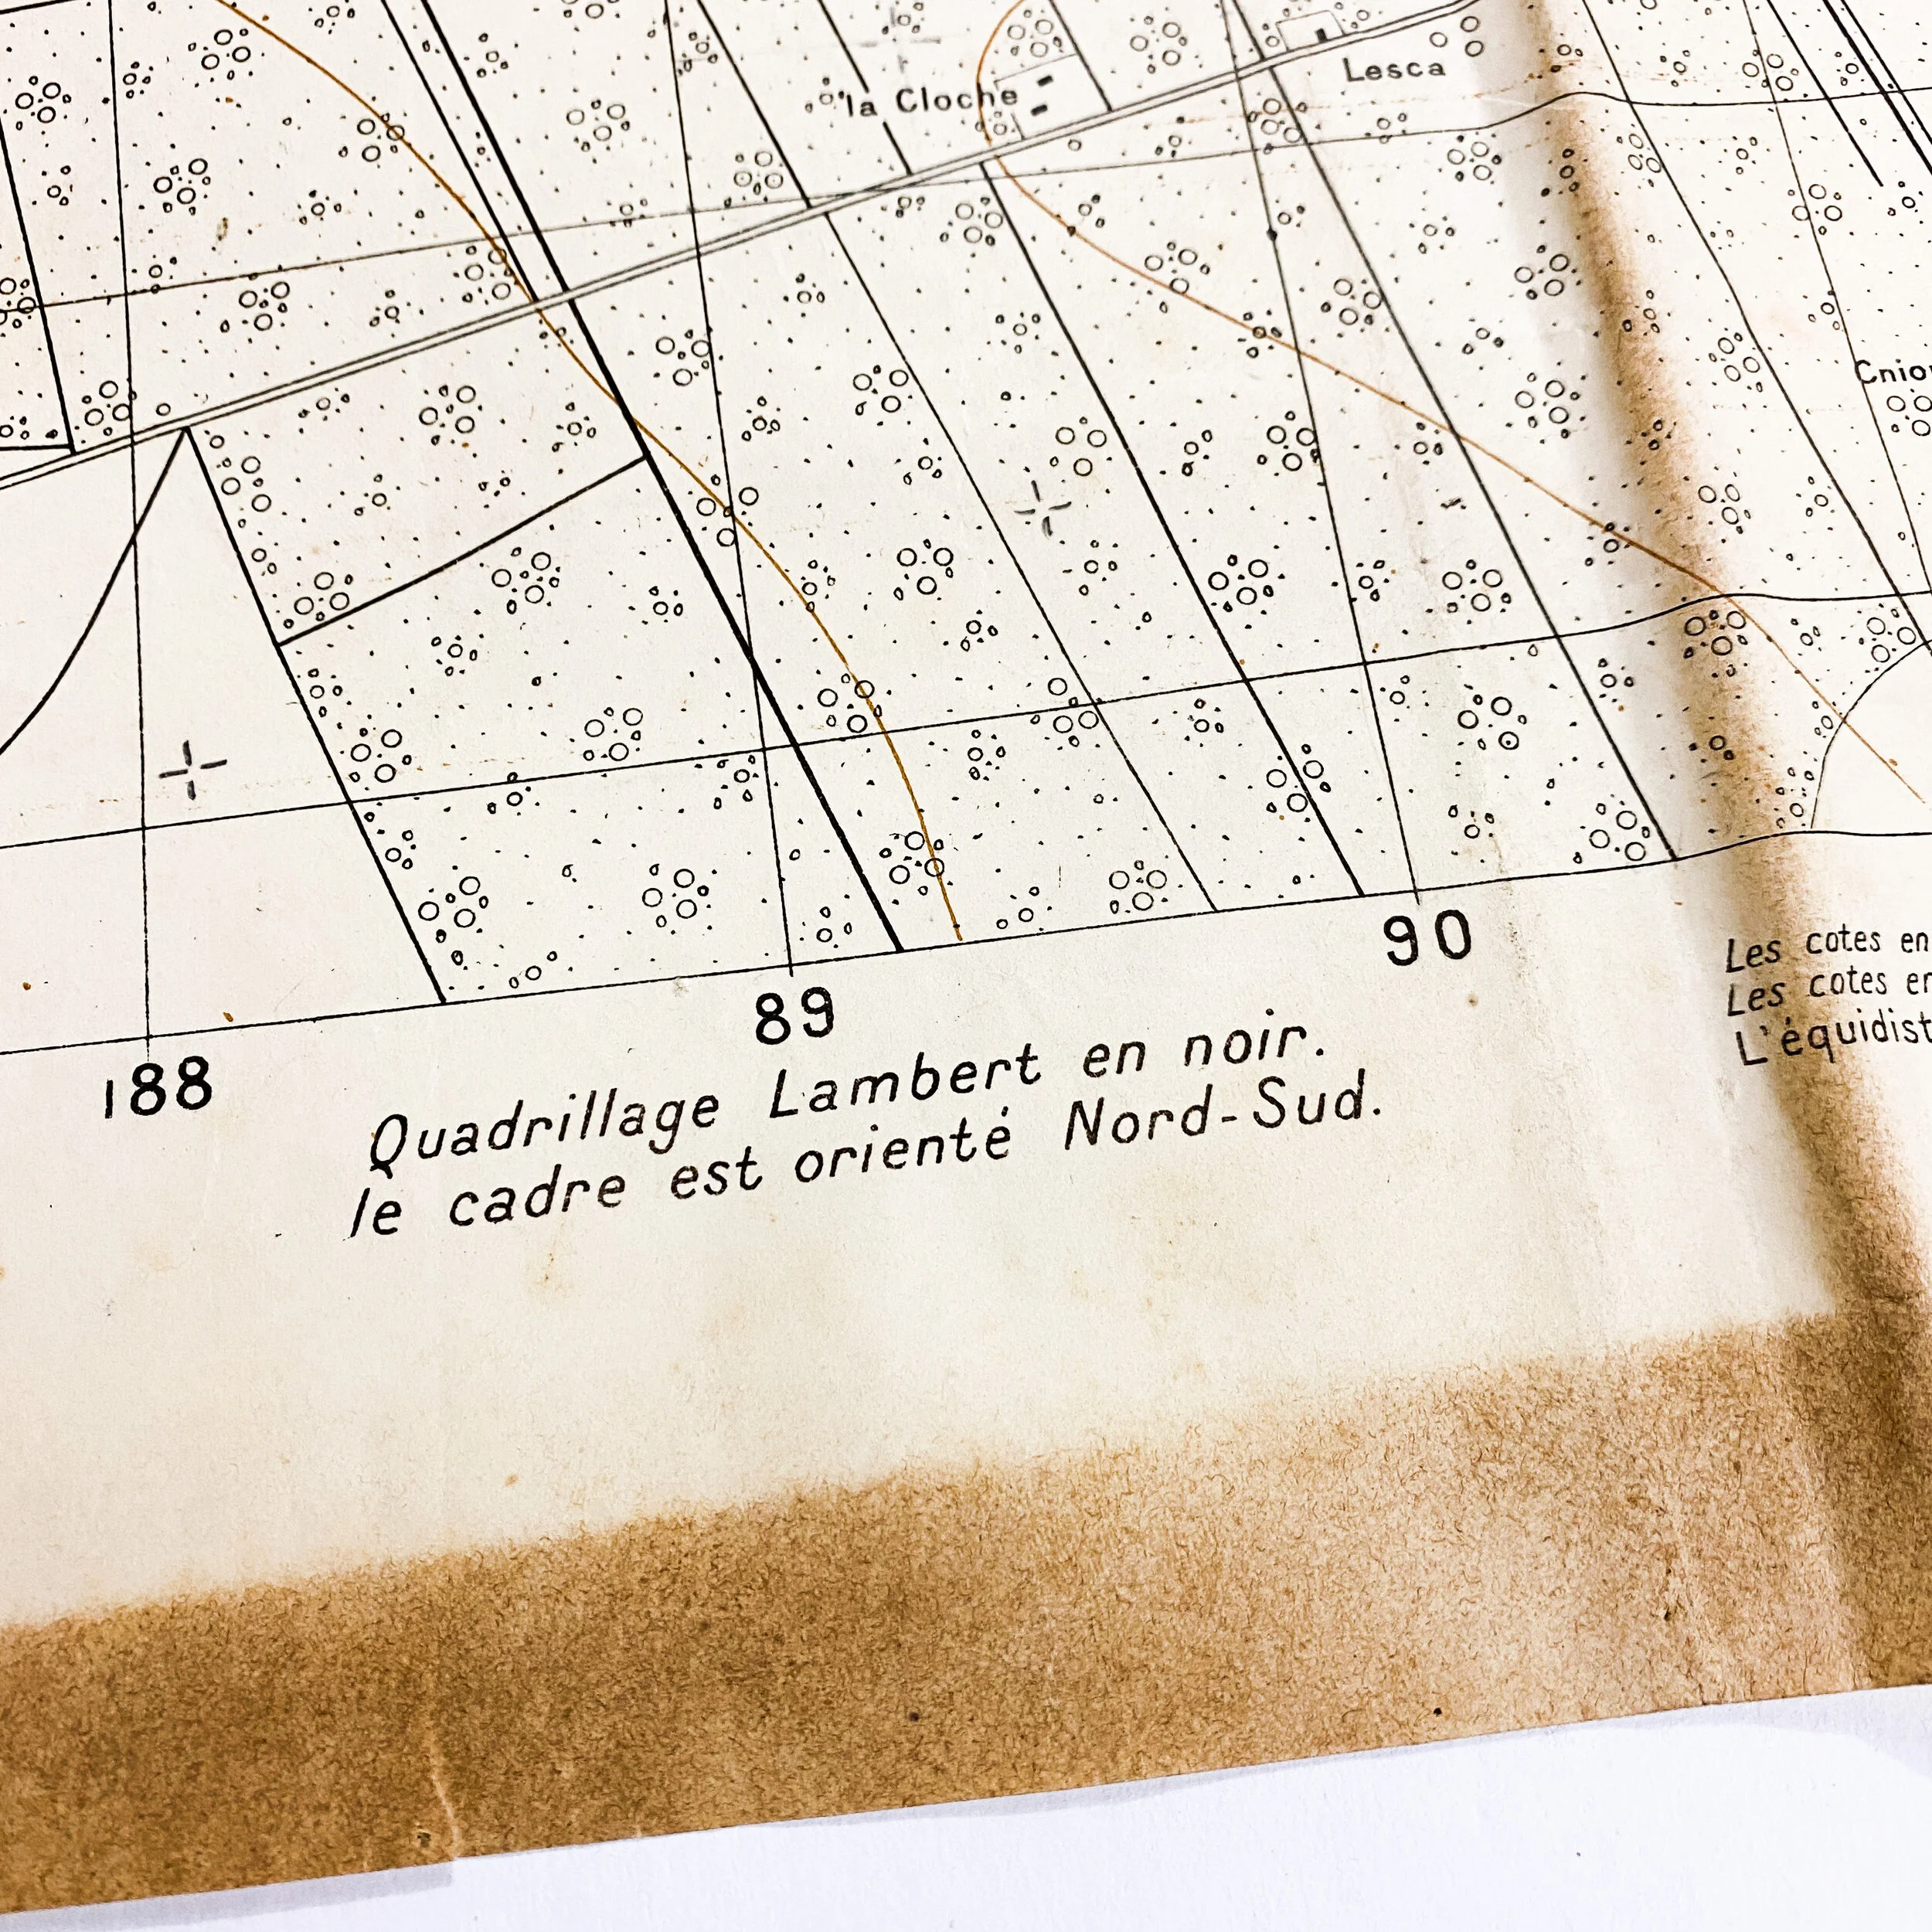 Lesca
la Cloche
90
89
188
Quadrillage Lambert en noir.
le cadre est orienté Nord-Sud.
Les cotes en
Les cotes